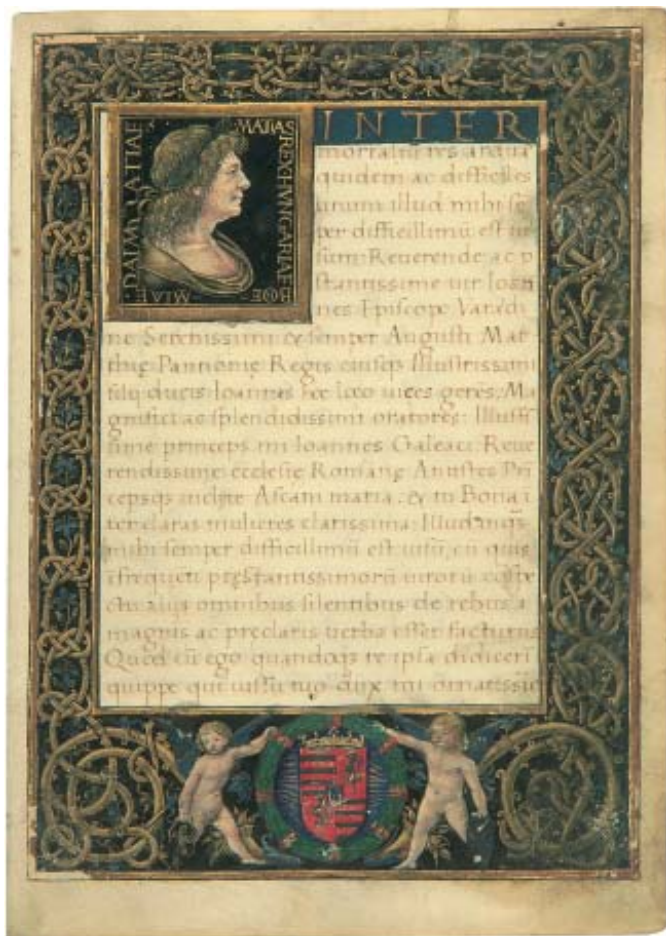 MATIAS
REX HVNGARIAE
BOE
MIAE
DALMATIAE
INTER
mortaliū res arduæ
quidem ac difficiles
unum illud mihi sē
per difficillimū est ui
sum: Reuerende ac p
stantissime uir Ioan
nes Episcope Varadi
ne Serenissimi & semper Augusti Mat
thię Pannonię Regis eiusqs Illustrissimi
filij ducis Ioannis hoc loco uices gerēs, Ma
gnifici ac splendidissimi oratores: Illustris
sime princeps mi Ioannes Galeaci: Reue
rendissime ecclesie Romanę Antistes Pri
cepsqs inclyte Ascani maria. & tu Bona i
ter claras mulieres clarissima: Illud
mihi semper difficillimū est uisū, cū quis
ī frequēti pręstantissimorū uirorū cōspe
ctu alijs omnibus silentibus de rebus
magnis ac preclaris uerba esset facturus
Quod cū ego quandoqs re ipsa didiceri
quippe qui iussu tuo dux mi ornatissi